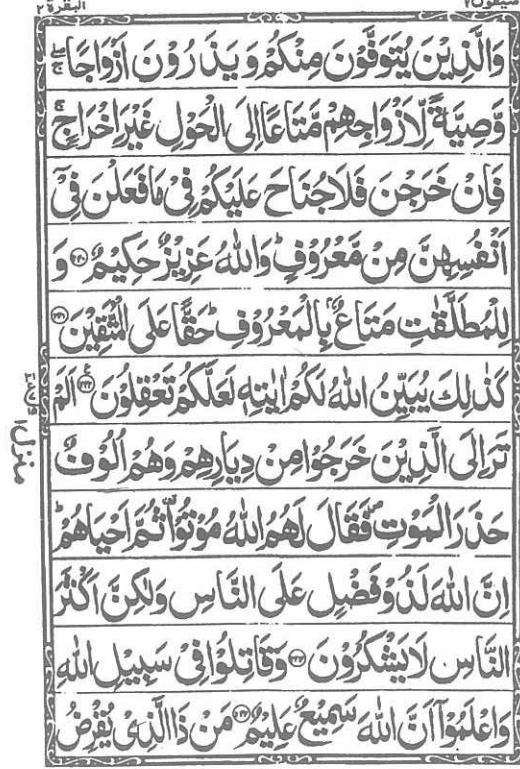 سيقول ٢ البقرة ٢
وَالَّذِيْنَ يُتَوَفَّوْنَ مِنْكُمْ وَيَذَرُوْنَ اَزْوَاجًا ۖۚ
وَّصِيَّةً لِّاَزْوَاجِهِمْ مَّتَاعًا اِلَى الْحَوْلِ غَيْرَ اِخْرَاجٍ ۚ
فَاِنْ خَرَجْنَ فَلَا جُنَاحَ عَلَيْكُمْ فِيْ مَا فَعَلْنَ فِيْٓ
اَنْفُسِهِنَّ مِنْ مَّعْرُوْفٍ ؕ وَاللّٰهُ عَزِيْزٌ حَكِيْمٌ ﴿٢٤٠﴾ وَ
لِلْمُطَلَّقٰتِ مَتَاعٌۢ بِالْمَعْرُوْفِ ؕ حَقًّا عَلَى الْمُتَّقِيْنَ ﴿٢٤١﴾
كَذٰلِكَ يُبَيِّنُ اللّٰهُ لَكُمْ اٰيٰتِهٖ لَعَلَّكُمْ تَعْقِلُوْنَ ﴿٢٤٢﴾ ع اَلَمْ
تَرَ اِلَى الَّذِيْنَ خَرَجُوْا مِنْ دِيَارِهِمْ وَهُمْ اُلُوْفٌ
حَذَرَ الْمَوْتِ ۪ فَقَالَ لَهُمُ اللّٰهُ مُوْتُوْا ۫ ثُمَّ اَحْيَاهُمْ ؕ
اِنَّ اللّٰهَ لَذُوْ فَضْلٍ عَلَى النَّاسِ وَلٰكِنَّ اَكْثَرَ
النَّاسِ لَا يَشْكُرُوْنَ ﴿٢٤٣﴾ وَقَاتِلُوْا فِيْ سَبِيْلِ اللّٰهِ
وَاعْلَمُوْٓا اَنَّ اللّٰهَ سَمِيْعٌ عَلِيْمٌ ﴿٢٤٤﴾ مَنْ ذَا الَّذِيْ يُقْرِضُ
منزل ١